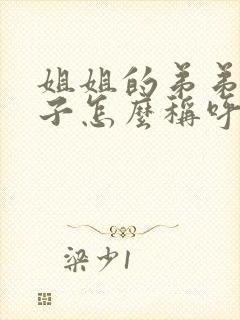 姐姐的弟弟
子怎麼稱呼
梁少1